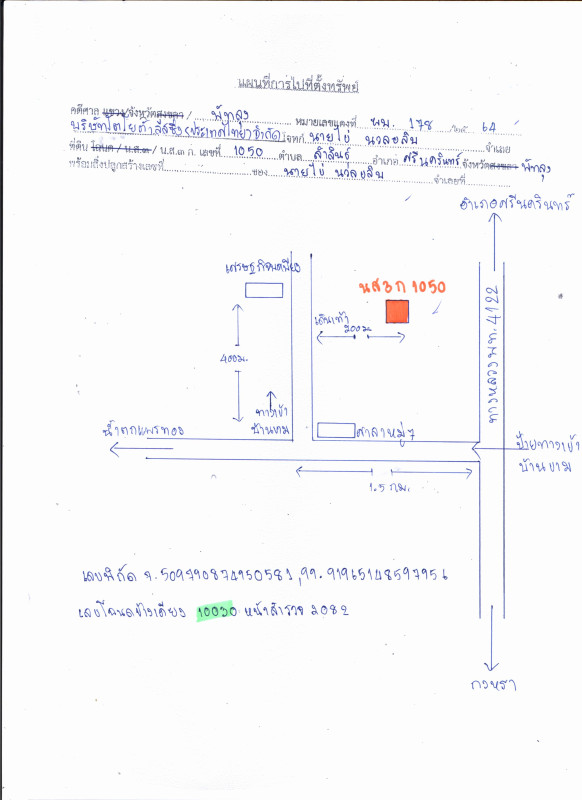 แผนที่การไปที่ตั้งทรัพย์
คดีศาล แขวง/จังหวัดสงขลา / พัทลุง หมายเลขแดงที่ ผบ. 178 /25 64
บริษัทโตโยต้าลีสซิ่ง (ประเทศไทย) จำกัด โจทก์ นายไข่ นวลอลิน จำเลย
ที่ดิน โฉนด / น.ส.๓ / น.ส.๓ ก. เลขที่ 1050 ตำบล ลำสินธุ์ อำเภอ ศรีนครินทร์ จังหวัดสงขลา พัทลุง
พร้อมสิ่งปลูกสร้างเลขที่ ของ นายไข่ นวลอลิน จำเลยที่
อำเภอศรีนครินทร์
เศรษฐกิจพอเพียง
นส3ก 1050
เดินเท้า
200ม.
400ม.
ทางหลวง พท. 4122
ทางเข้า
บ้านขาม
น้ำตกแพรทอง
ศาลาหมู่ 7
ป้ายทางเข้า
บ้านขาม
1.5 กม.
เลขพิกัด 7.509790874950581, 99.91965148597956
เลขโฉนดข้างเคียง 10030 หน้าสำรวจ 2082
กงหรา